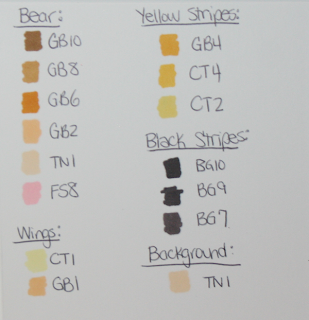 Bear:
GB10
GB8
GB6
GB2
TN1
FS8
Wings:
CT1
GB1
Yellow Stripes:
GB4
CT4
CT2
Black Stripes:
BG10
BG9
BG7
Background:
TN1